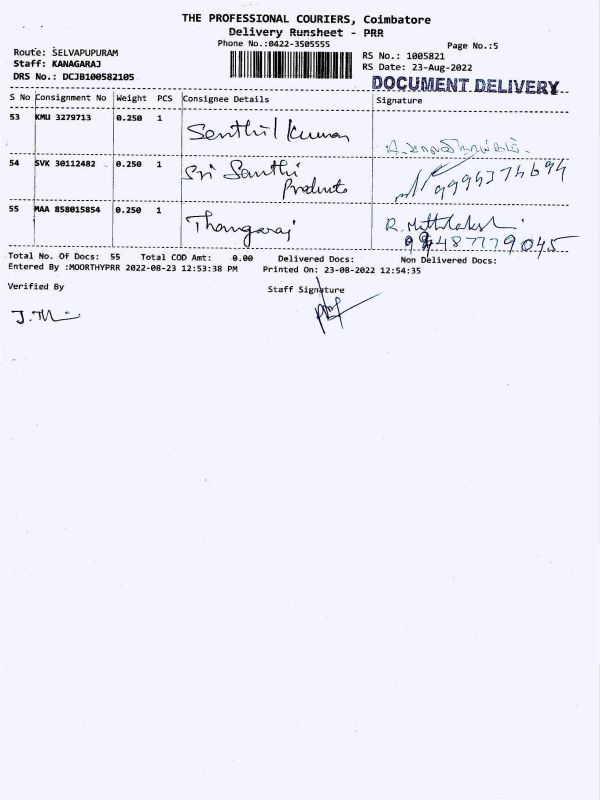 THE PROFESSIONAL COURIERS, Coimbatore
Delivery Runsheet - PRR
Phone No.:0422-3505555
Page No.:5
Route: SELVAPUPURAM
RS No.: 1005821
Staff: KANAGARAJ
RS Date: 23-Aug-2022
DRS No.: DCJB100582105
DOCUMENT DELIVERY
S No Consignment No Weight PCS Consignee Details Signature
53 KMU 3279713 0.250 1 Senthil Kumar
54 SVK 30112482 0.250 1 Sri Santhi
Products 9994374694
55 MAA 858015854 0.250 1 Thangaraj R. Muthulakshmi
Total No. Of Docs: 55 Total COD Amt: 0.00 Delivered Docs: Non Delivered Docs:
Entered By :MOORTHYPRR 2022-08-23 12:53:38 PM Printed On: 23-08-2022 12:54:35
Verified By Staff Signature